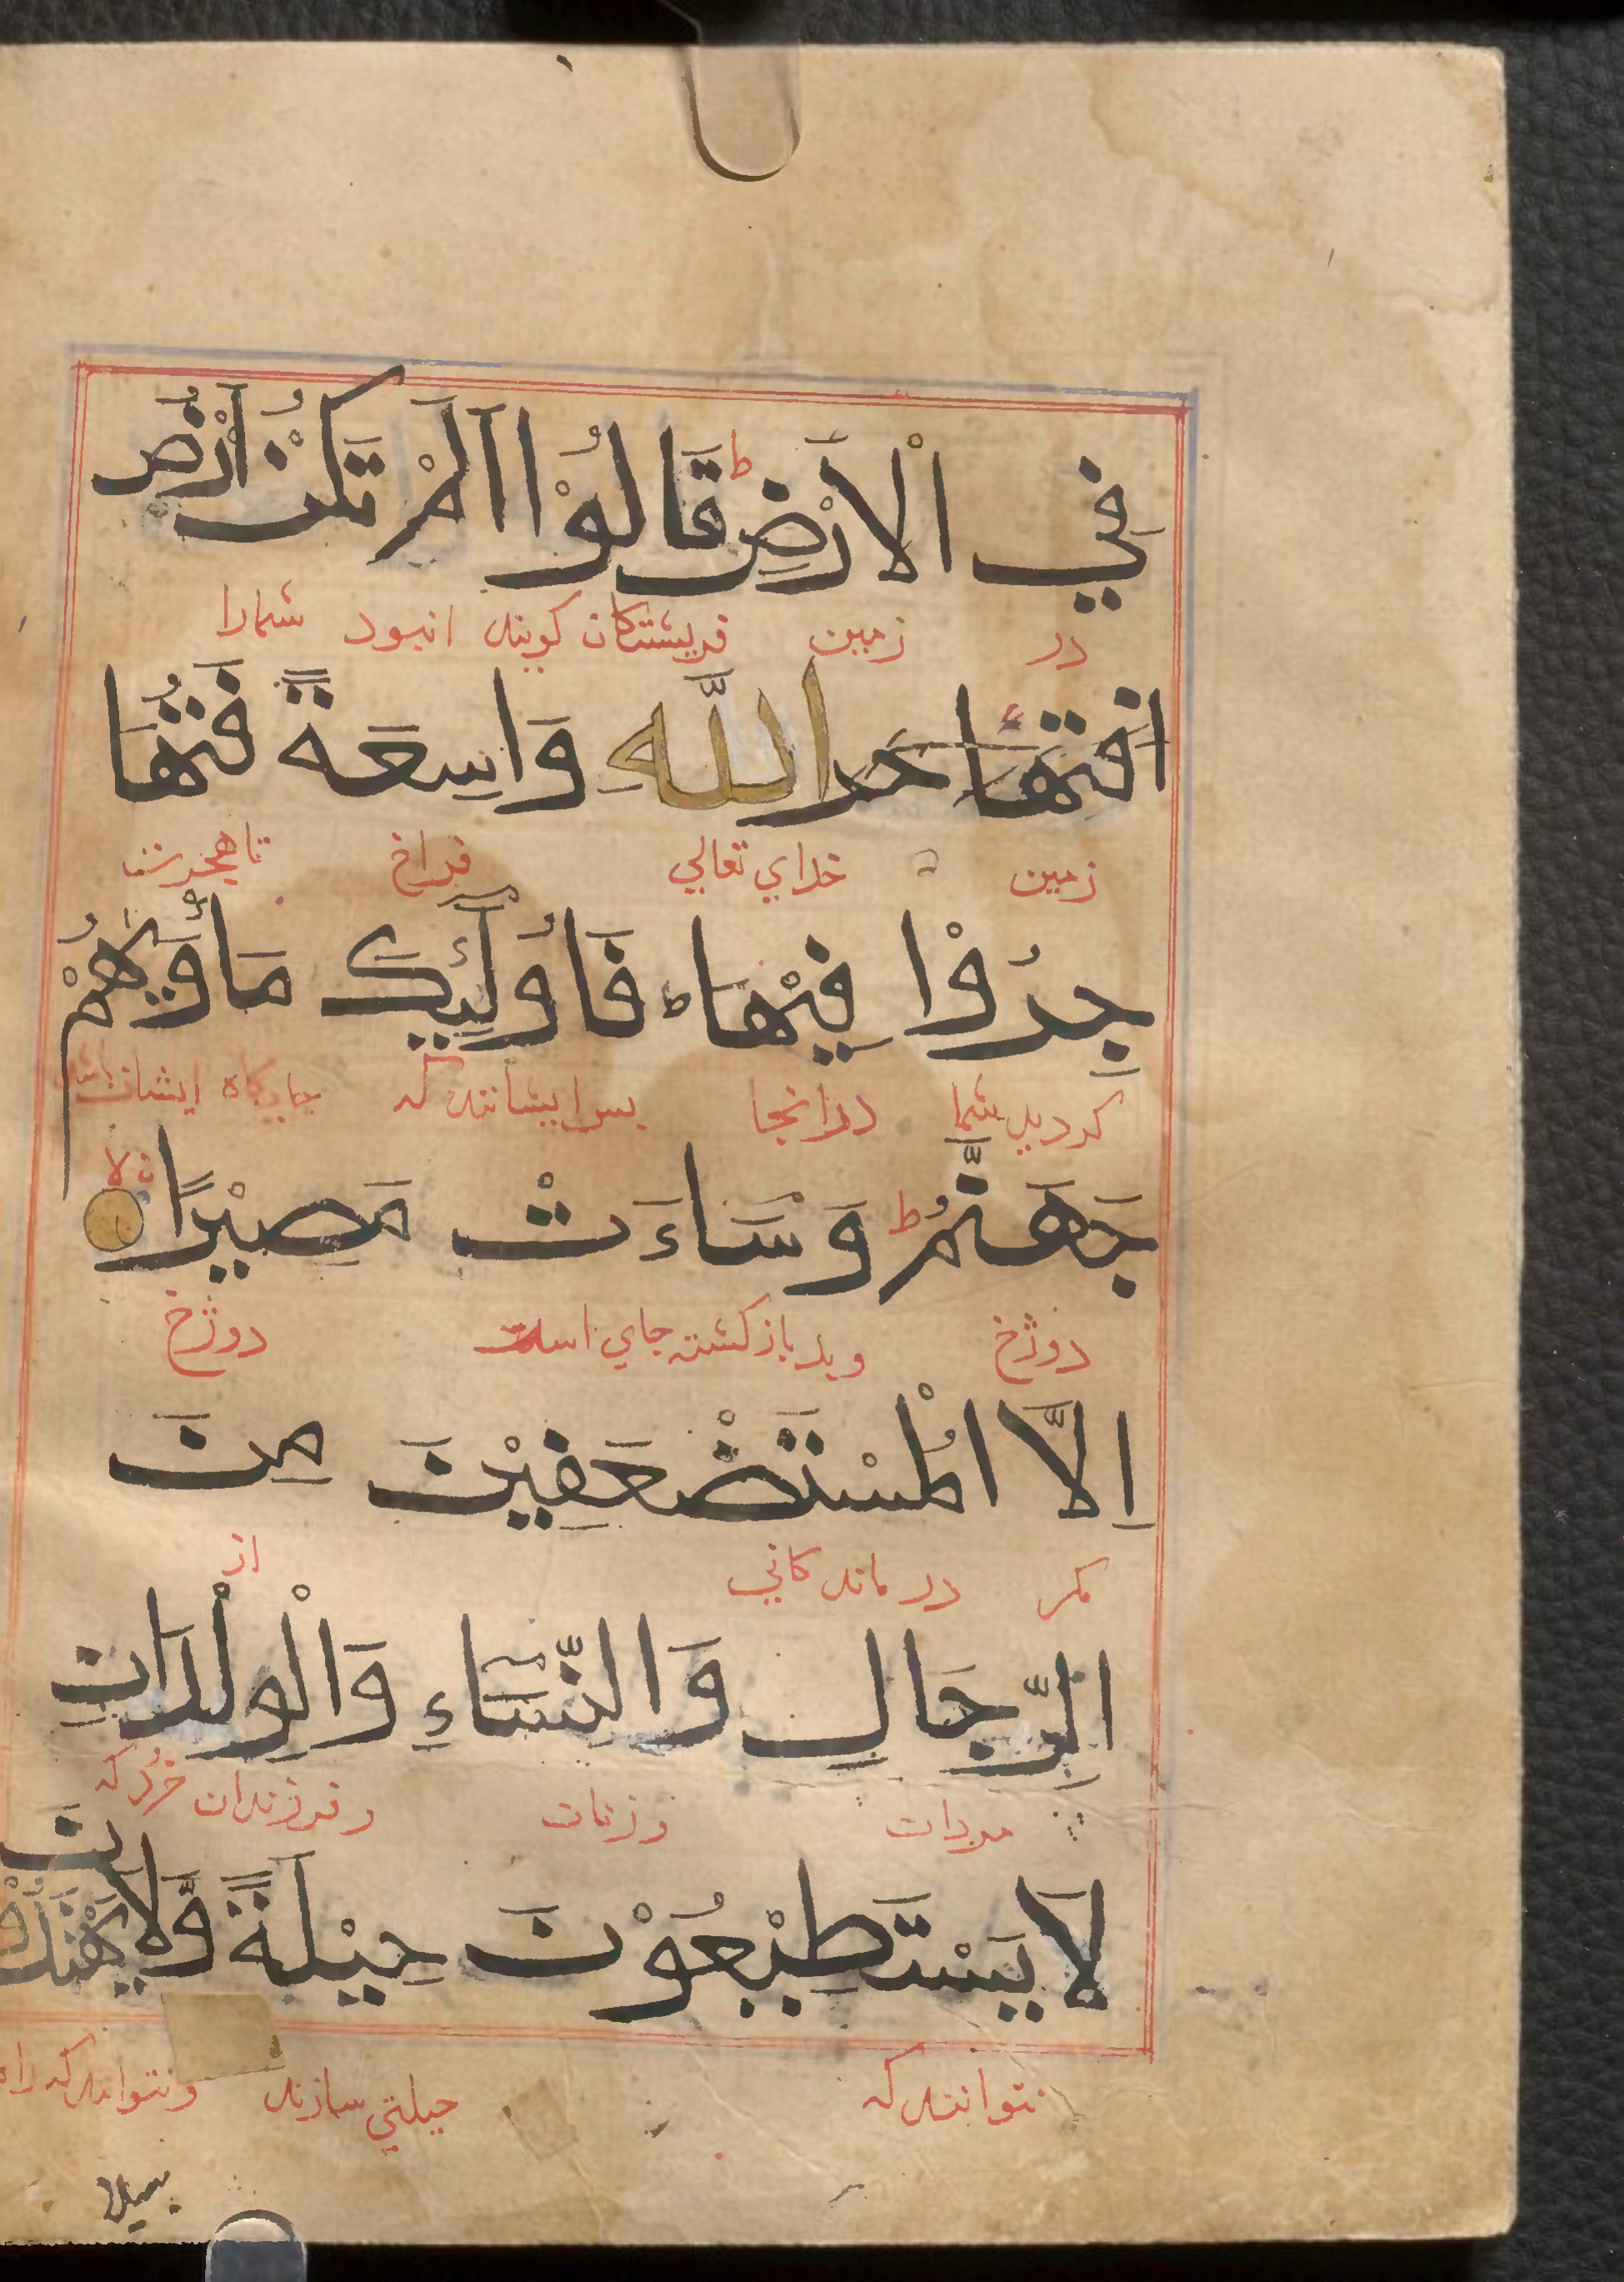 في الْاَرْضِ ط قَالُوْا اَلَمْ تَكُنْ اَرْضُ
در زمين فريشتكان كويند انبود شمارا
افتها حر اللّٰهِ وَاسِعَةً فَتُهَا
زمين خداي تعالي فراخ تا هجرت
جِرُوْا فِيْهَا ه فَاُولٰٓئِكَ مَاْوٰىهُمْ
كرديد شما درانجا بس ايشانند كه جايكاه ايشان
جَهَنَّمُ ط وَسَاءَتْ مَصِيْرًا لا
دوزخ وبد باز كشتن جاي است دوزخ
اِلَّا الْمُسْتَضْعَفِيْنَ مِنَ
مكر در ماندكاني از
الرِّجَالِ وَالنِّسَآءِ وَالْوِلْدَانِ
مردان وزنان وفرزندان خرد كه
لَا يَسْتَطِيْعُوْنَ حِيْلَةً وَّلَا يَهْتَدُوْنَ
نتوانند كه حيلتي سازند ونتوانند كه راه
سبيلا